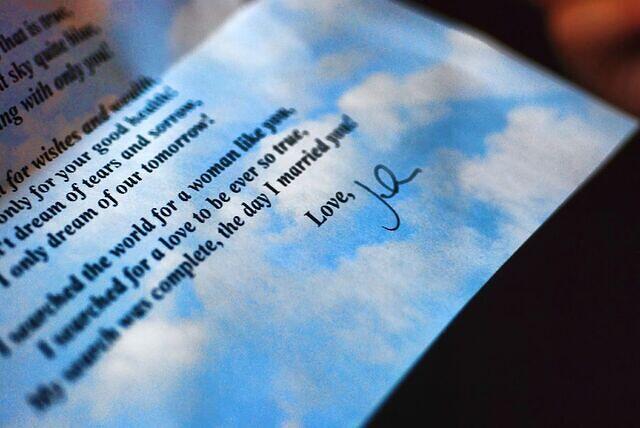 that is true,
sky quite blue,
ng with only you!
for wishes and wealth,
only for your good health!
't dream of tears and sorrow,
I only dream of our tomorrow!
I searched the world for a woman like you,
I searched for a love to be ever so true,
My search was complete, the day I married you!
Love,